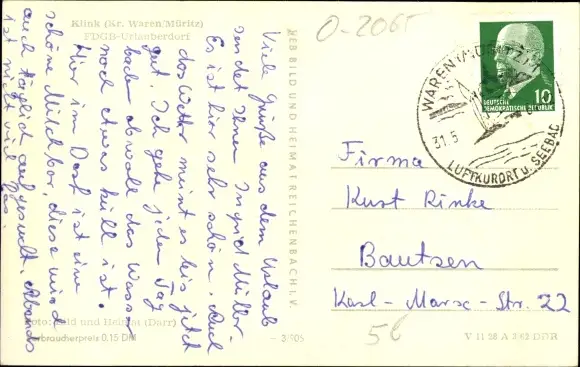 Klink (Kr. Waren/Müritz)
FDGB-Urlauberdorf
Viele Grüße aus dem Urlaub
sendet Ihnen Ingrid Müller.
Es ist hier sehr schön. Auch
das Wetter meint es bis jetzt
gut. Ich gehe jeden Tag
baden obwohl das Wasser
noch etwas kühl ist.
Hier im Dorf ist eine
schöne Milchbar, diese wird
auch täglich aufgesucht. Abends
ist nicht viel los.
Foto: Bild und Heimat (Darr)
Verbraucherpreis 0,15 DM
VEB BILD UND HEIMAT REICHENBACH i. V.
3/905
O-2065
WAREN (MÜRITZ)
31.5
LUFTKURORT U. SEEBAD
10
DEUTSCHE
DEMOKRATISCHE REPUBLIK
Firma
Kurt Rinke
Bautsen
Karl-Marx-Str. 22
56
V 11 28 A 2/62 DDR